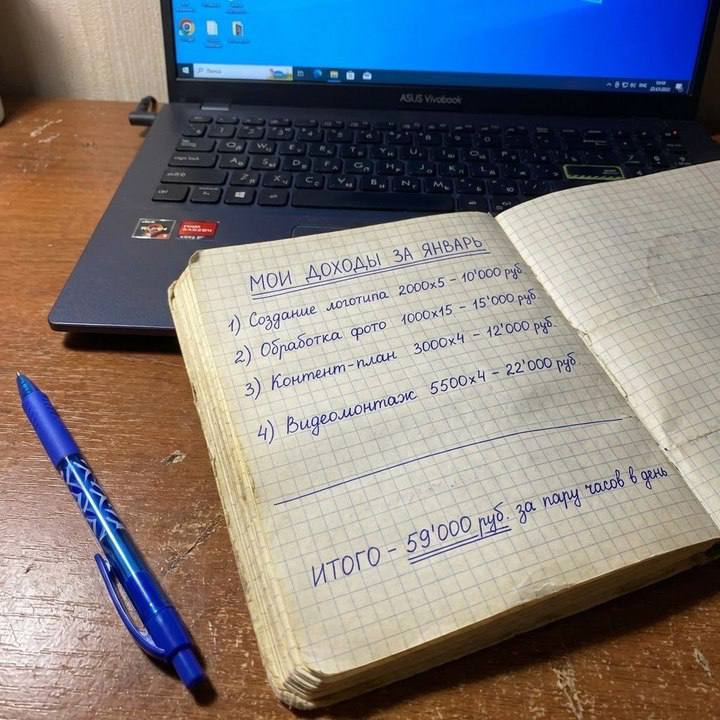 Поиск
ASUS Vivobook
МОИ ДОХОДЫ ЗА ЯНВАРЬ
1) Создание логотипа 2000х5 – 10'000 руб.
2) Обработка фото 1000х15 – 15'000 руб.
3) Контент-план 3000х4 – 12'000 руб.
4) Видеомонтаж 5500х4 – 22'000 руб.
ИТОГО – 59'000 руб. за пару часов в день